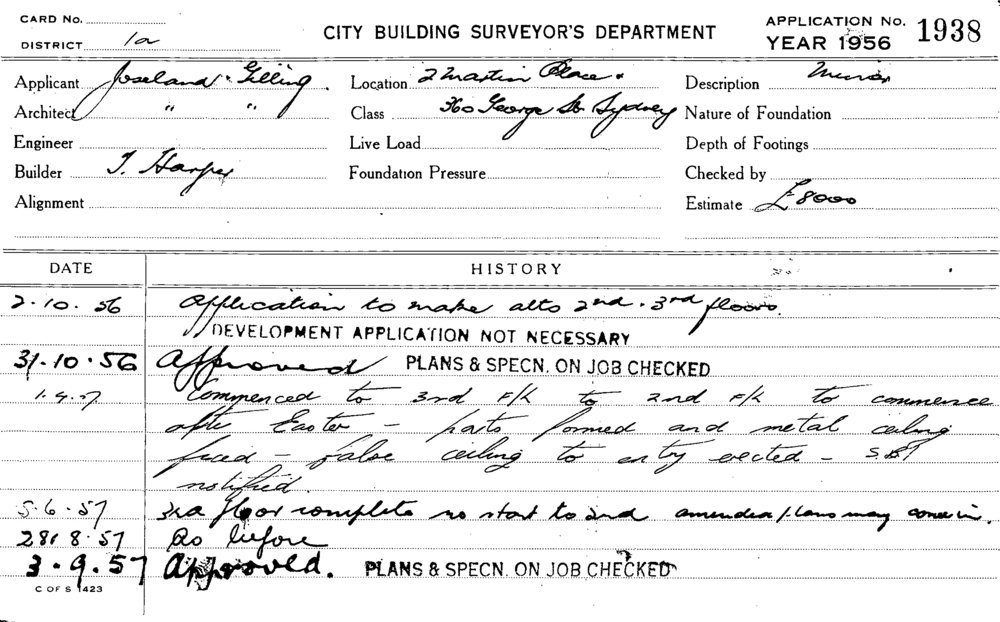 CARD No.
DISTRICT 1a
CITY BUILDING SURVEYOR'S DEPARTMENT
APPLICATION No. 1938
YEAR 1956
Applicant Joseland & Gilling.
Location 2 Martin Place &
Description Minor
Architect " "
Class 360 George St Sydney
Nature of Foundation
Engineer
Live Load
Depth of Footings
Builder T. Harper
Foundation Pressure
Checked by
Alignment
Estimate £8000
DATE
HISTORY
2.10.56 Application to make alts 2nd. 3rd floors.
DEVELOPMENT APPLICATION NOT NECESSARY
31.10.56 Approved PLANS & SPECN. ON JOB CHECKED
1.4.57 Commenced to 3rd F/L to 2nd F/L to commence
after Easter – parts formed and metal ceiling
fixed – false ceiling to entry erected –
notified.
5.6.57 3rd floor complete no start to 2nd amended plans may come in.
28.8.57 As before
3.9.57 Approved. PLANS & SPECN. ON JOB CHECKED
C OF S 1423